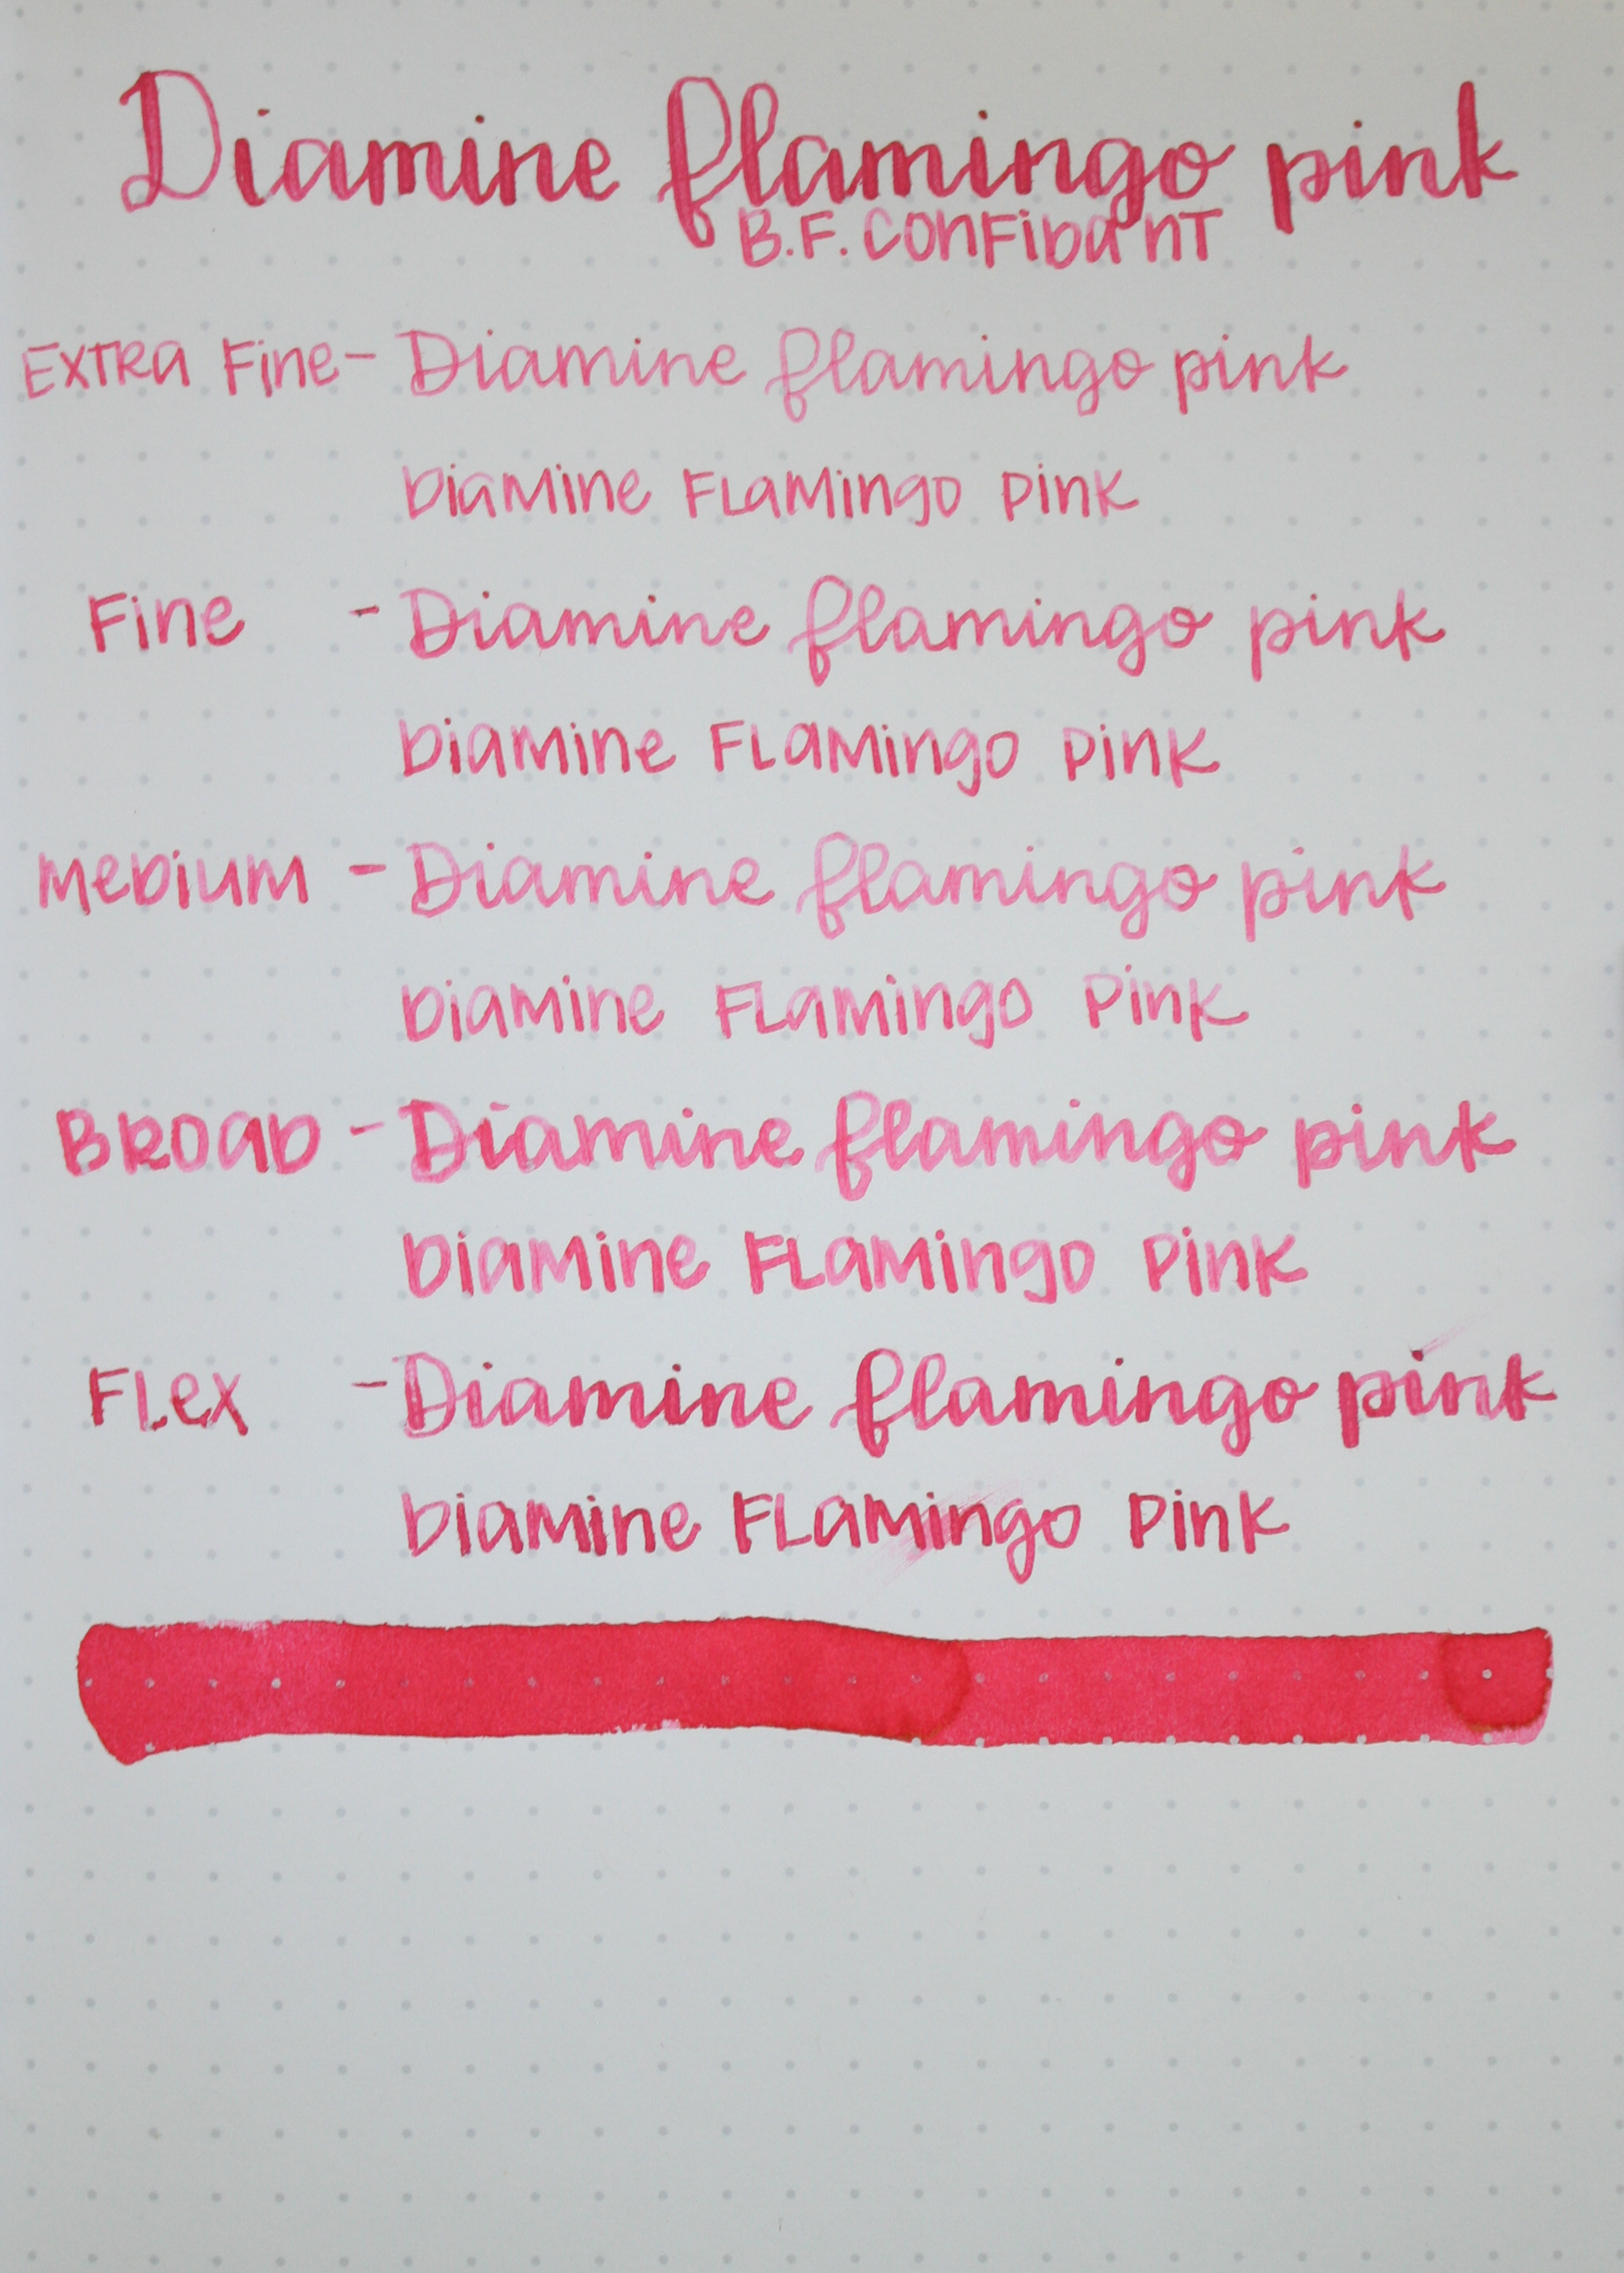 Diamine flamingo pink
B.F. Confidant
Extra Fine - Diamine flamingo pink
Diamine Flamingo Pink
Fine - Diamine flamingo pink
Diamine Flamingo Pink
Medium - Diamine flamingo pink
Diamine Flamingo Pink
Broad - Diamine flamingo pink
Diamine Flamingo Pink
Flex - Diamine flamingo pink
Diamine Flamingo Pink